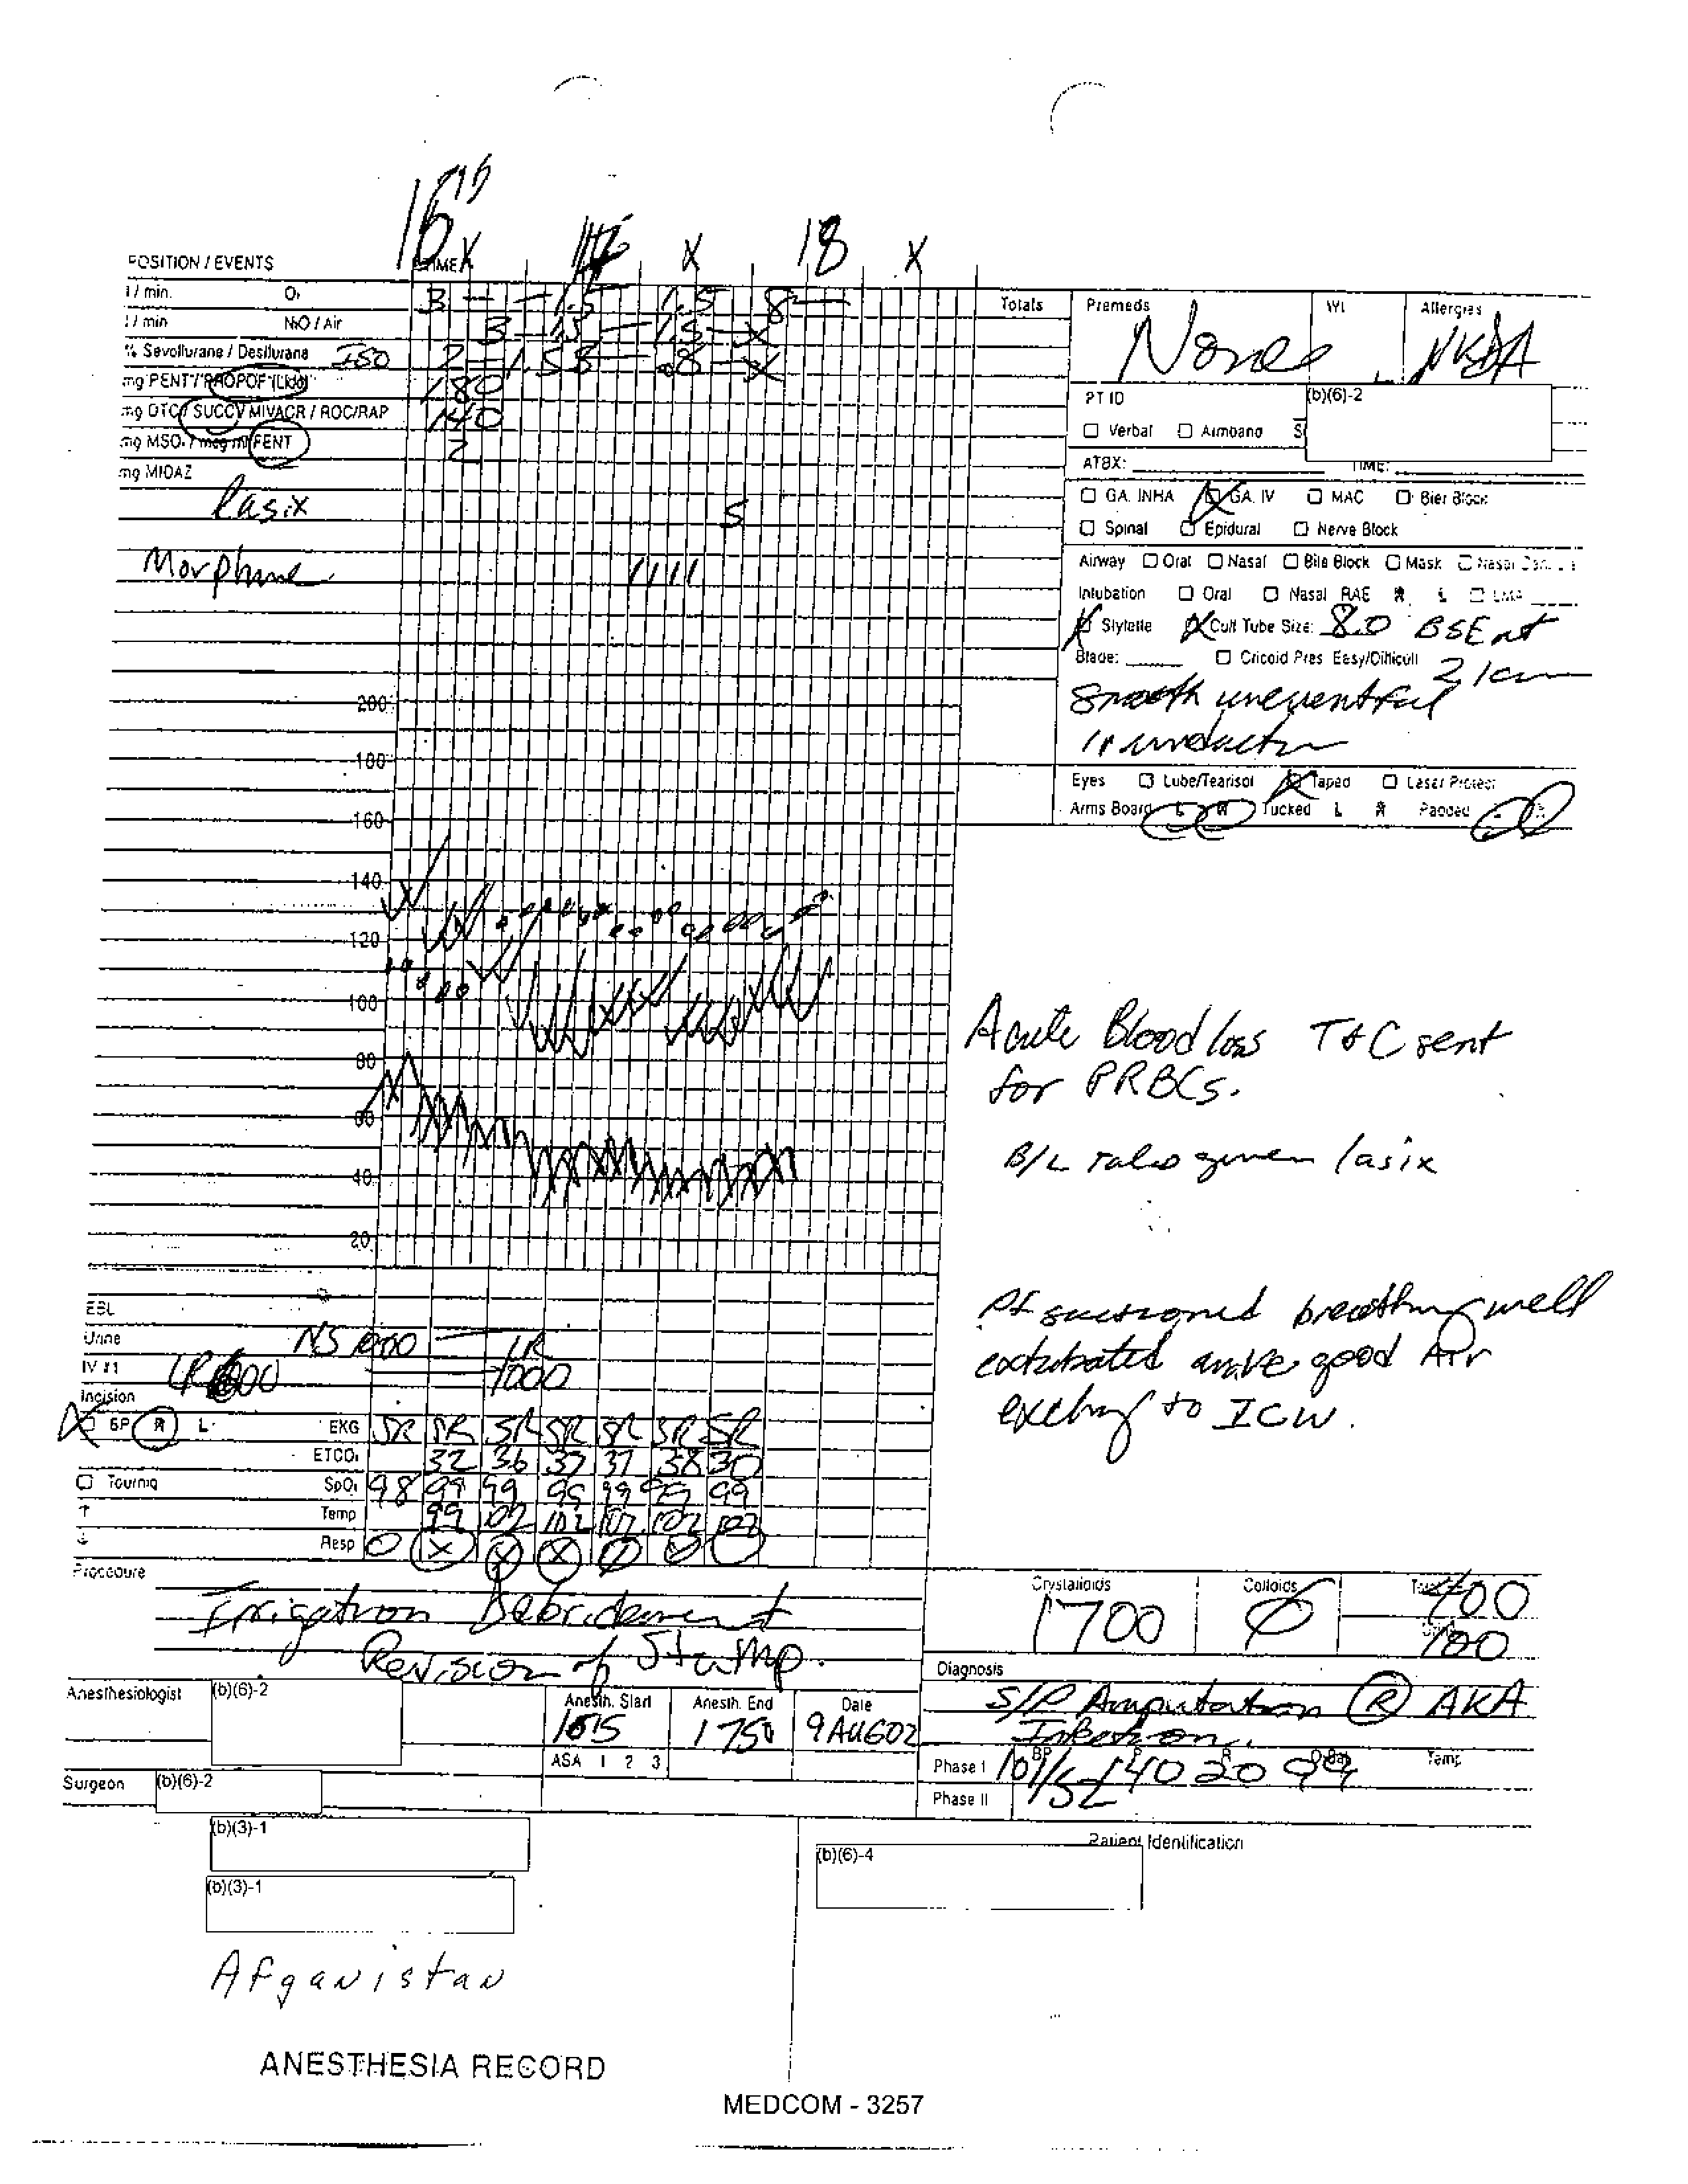 16 15
X X 18 X
POSITION / EVENTS TIME
l / min. O₂ 3 — — 1.5 1.5 8 —
l / min N₂O / Air 3 1.5 — 1.5 — X
% Sevoflurane / Desflurane ISO 2 — 1.5 — .8 — X
mg PENT / PROPOF (Lido) 180
mg DTC / SUCC / MIVACR / ROC/RAP 140
mg MSO₄ / mcg FENT 2
mg MIDAZ
lasix 5
Morphine 1 1 1 1
200
180
160
140
120
100
80
60
40
20
Totals
Premeds Wt. Allergies
None NKDA
PT ID (b)(6)-2
Verbal Armband
ATBX: TIME:
GA. INHA GA. IV MAC Bier Block
Spinal Epidural Nerve Block
Airway Oral Nasal Bite Block Mask
Intubation Oral Nasal RAE R L LMA
Stylette Cuff Tube Size: 8.0 BSE
Blade: Cricoid Pres Easy/Difficult 21cm
Smooth uneventful
induction
Eyes Lube/Tearisol Taped Laser Protect
Arms Board L R Tucked L R Padded
Acute Blood loss T&C sent
for PRBCs.
B/L rales given lasix
Pt suctioned breathing well
extubated awake good Air
exchang to ICW.
EBL
Urine NS 1000 — LR
IV #1 LR 1000
Incision
BP R L EKG SR SR SR SR SR SR SR
ETCO₂ 32 36 37 37 38 30
Tourniq SpO₂ 98 99 99 99 99 99 99
↑ Temp 99 102 102 102 102 102
↓ Resp
Procedure
Irrigation Debridement
Revision of Stump.
Crystalloids Colloids
1700 Ø 400
100
Diagnosis
S/P Amputation R AKA
Infection.
Anesthesiologist (b)(6)-2
Anesth. Start Anesth. End Date
1615 1750 9AUG02
ASA 1 2 3
Surgeon (b)(6)-2
BP P R Temp
Phase I 101/52 140 20 99
Phase II
(b)(3)-1
(b)(3)-1
Patient Identification
(b)(6)-4
Afganistan
ANESTHESIA RECORD
MEDCOM - 3257